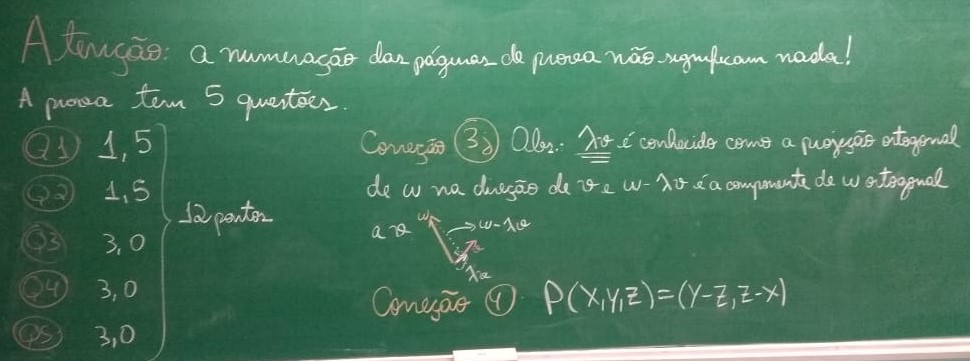 Atenção: a numeração das páginas da prova não significam nada!
A prova tem 5 questões.
Q1 1,5
Q2 1,5
Q3 3,0
Q4 3,0
Q5 3,0
12 pontos
Correção 3) Obs.: λv é conhecido como a projeção ortogonal
de w na direção de v e w-λv é a componente de w ortogonal
a v
w
w-λv
v
λv
Correção 4) P(X,Y,Z)=(Y-Z,Z-X)